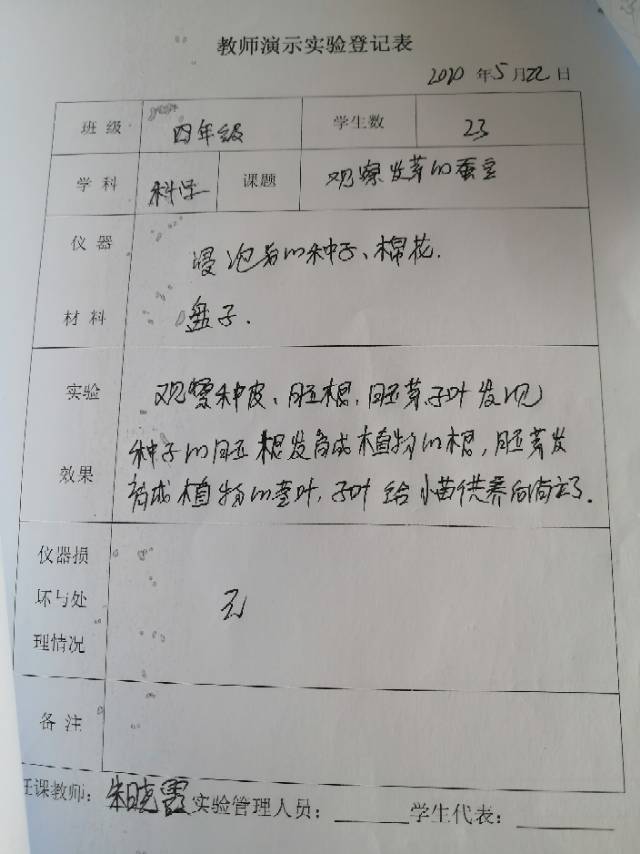 教师演示实验登记表
2020 年 5 月 22 日
班级 四年级 学生数 23
学科 科学 课题 观察发芽的蚕豆
仪器 浸泡后的种子、棉花.
材料 盘子.
实验 观察种皮、胚根、胚芽、子叶发现
种子的胚根发育成植物的根，胚芽发
效果 育成植物的茎叶，子叶给小苗供养后消失了.
仪器损
坏与处 无
理情况
备注
任课教师：朱晓霞 实验管理人员： 学生代表：